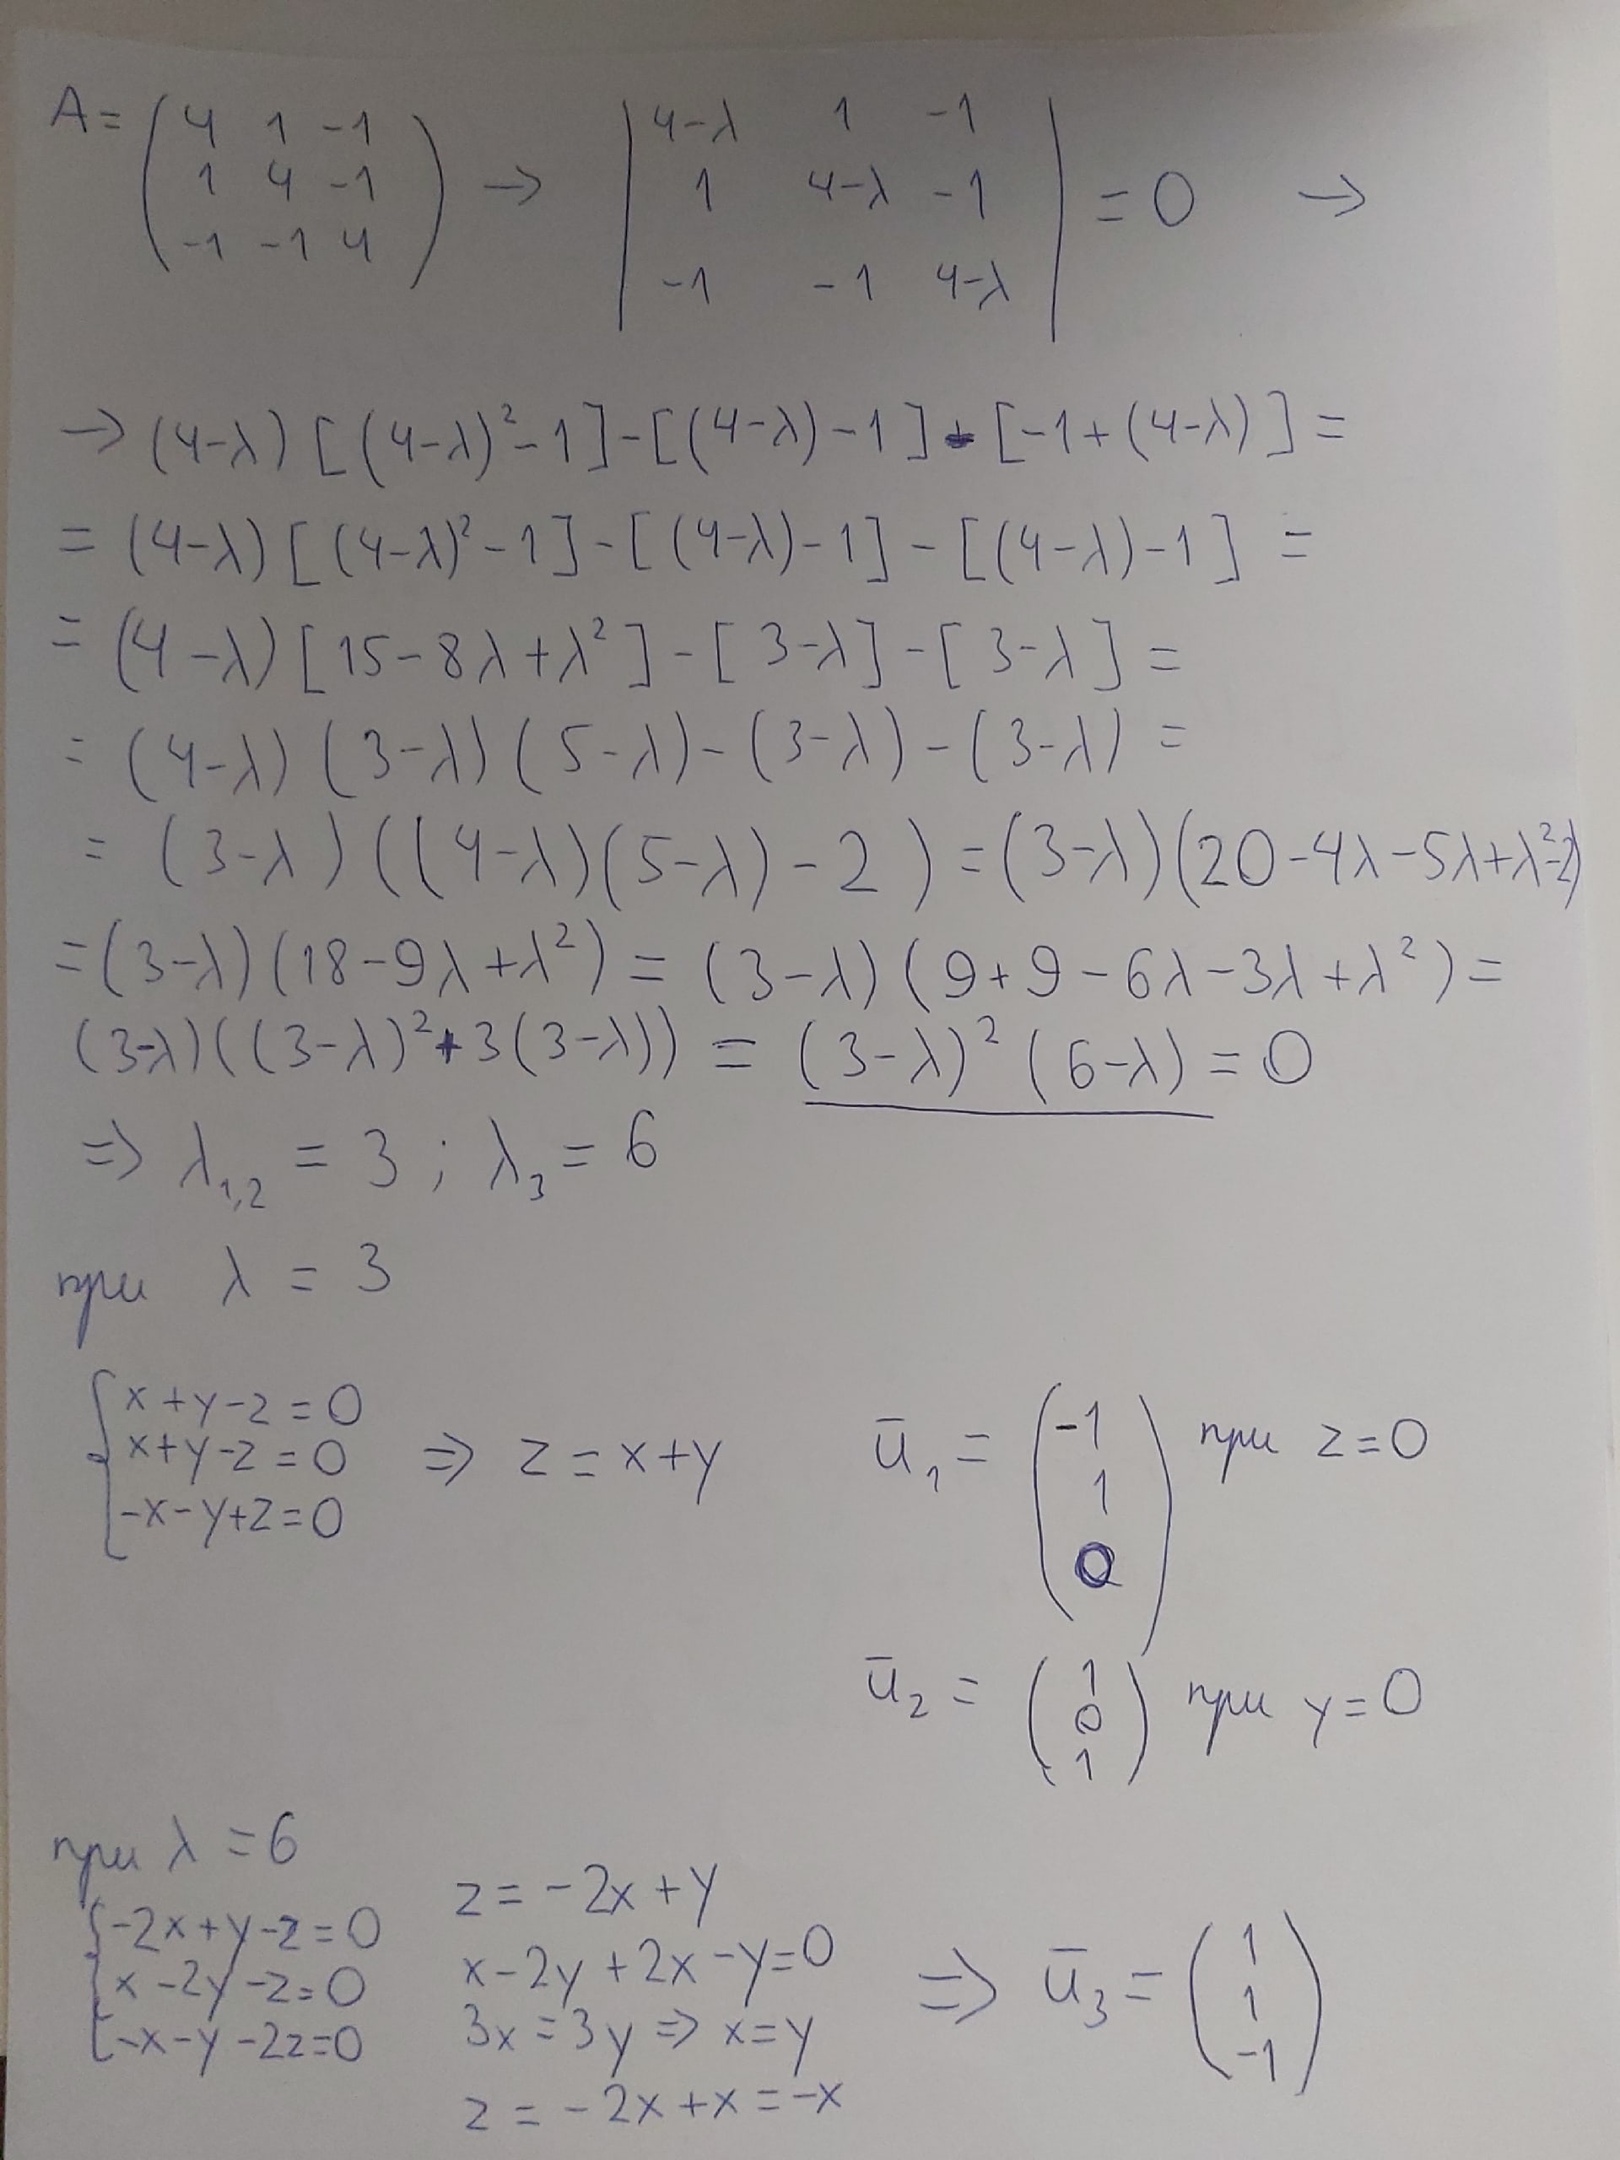 A = ( 4 1 -1 → | 4-λ 1 -1 | = 0 →
1 4 -1 1 4-λ -1
-1 -1 4 ) -1 -1 4-λ
→ (4-λ) [(4-λ)² - 1] - [(4-λ) - 1] - [-1 + (4-λ)] =
= (4-λ) [(4-λ)² - 1] - [(4-λ) - 1] - [(4-λ) - 1] =
= (4-λ) [15 - 8λ + λ²] - [3-λ] - [3-λ] =
= (4-λ) (3-λ) (5-λ) - (3-λ) - (3-λ) =
= (3-λ) ((4-λ)(5-λ) - 2) = (3-λ) (20 - 4λ - 5λ + λ² - 2)
= (3-λ) (18 - 9λ + λ²) = (3-λ) (9 + 9 - 6λ - 3λ + λ²) =
(3-λ) ((3-λ)² + 3(3-λ)) = (3-λ)² (6-λ) = 0
⇒ λ₁,₂ = 3 ; λ₃ = 6
при λ = 3
{ x + y - z = 0
x + y - z = 0 ⇒ z = x + y
-x - y + z = 0
ū₁ = ( -1
1
0 ) при z = 0
ū₂ = ( 1
0
1 ) при y = 0
при λ = 6
{ -2x + y - z = 0
x - 2y - z = 0
-x - y - 2z = 0
z = -2x + y
x - 2y + 2x - y = 0
3x = 3y ⇒ x = y
z = -2x + x = -x
⇒ ū₃ = ( 1
1
-1 )